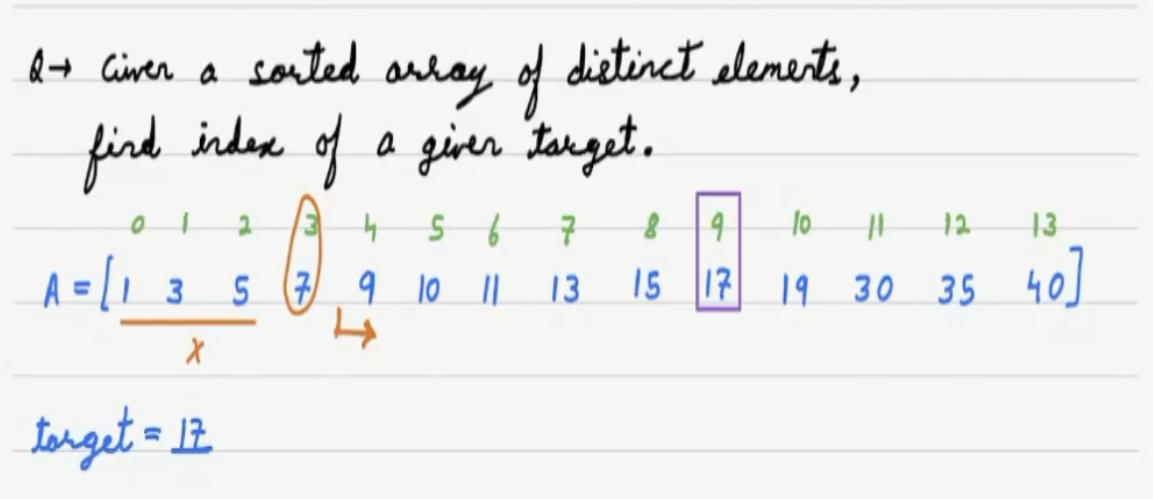 Q→ Given a sorted array of distinct elements,
find index of a given target.
0 1 2 3 4 5 6 7 8 9 10 11 12 13
A = [1 3 5 7 9 10 11 13 15 17 19 30 35 40]
x
target = 17